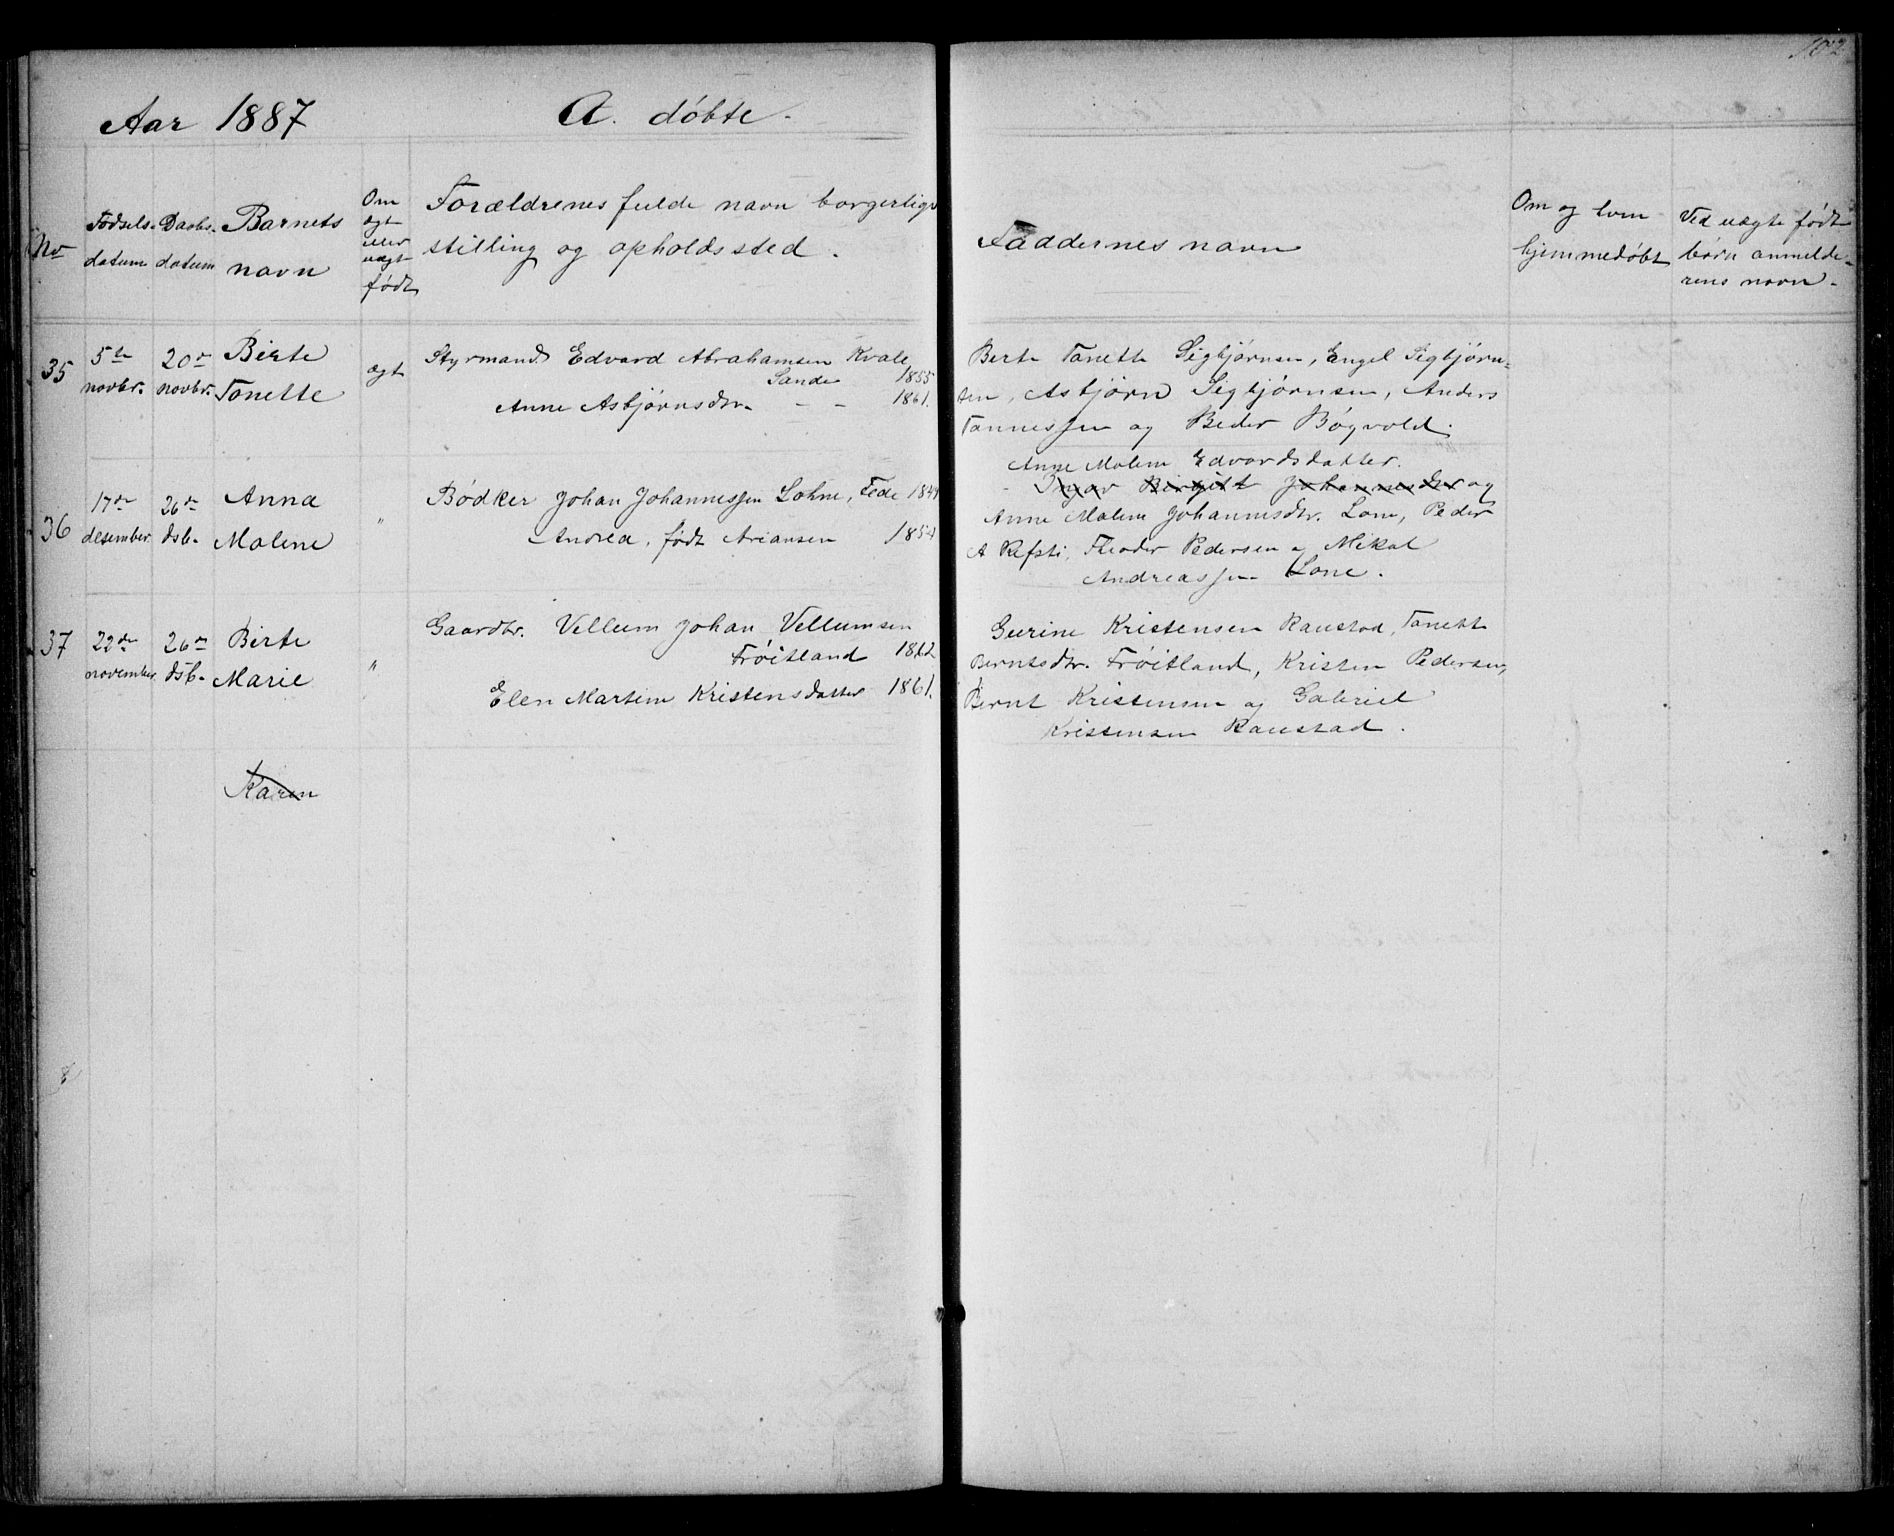 102
Aar 1887 A. døbte.
No
Fødsels-
datum
Daabs-
datum
Barnets
navn
Om
ægt
eller
uægt
født
Forældrenes fulde navn borgerlige
stilling og opholdssted.
Faddernes navn
Om og hvem
hjemmedøbt
Ved uægte født
børn anmelde-
rens navn.
35
5te
novbr.
20de
novbr.
Birte
Tonette
ægt
Styrmand Edvard Abrahamsen Kvale,
Sande 1855
Anne Asbjørnsdtr. - - 1861.
Berte Tanette Sigbjørnsen, Engel Sigbjørn-
sen, Asbjørn Sigbjørnsen, Anders
Tannessen og Peder Bøgvold.
36
17de
desember.
26de
dsb.
Anna
Malene
"
Bødker Johan Johannessen Lohne, Fede
Andrea, født Ariansen
Anne Malene Edvardsdatter.
Birgitt Johannesdtr og
Anne Malene Johannesdtr. Lone, Peder
A Refsti, Theodor Pedersen og Mikal
Andreassen Lone.
37
22de
november.
26de
dsb.
Birte
Marie
"
Gaardbr. Vellum Johan Vellumsen
Frøitland 1862
Elen Martine Kristensdatter 1861.
Geurine Kristensen Raustad, Tanette
Berntsdtr. Frøitland, Kristen Pedersen,
Bernt Kristensen og Gabriel
Kristensen Raustad.
Karen